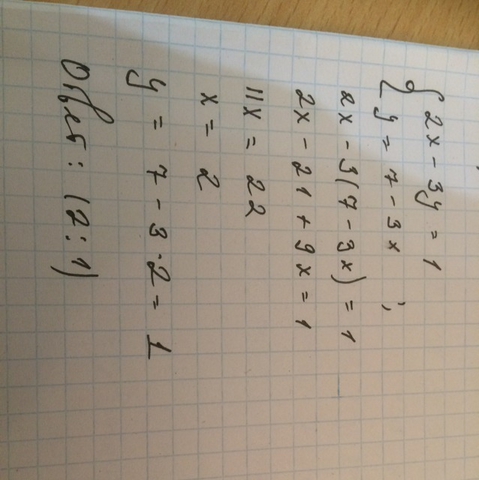 { 2x - 3y = 1
y = 7 - 3x ;
2x - 3(7 - 3x) = 1
2x - 21 + 9x = 1
11x = 22
x = 2
y = 7 - 3·2 = 1
Ответ: (2:1)